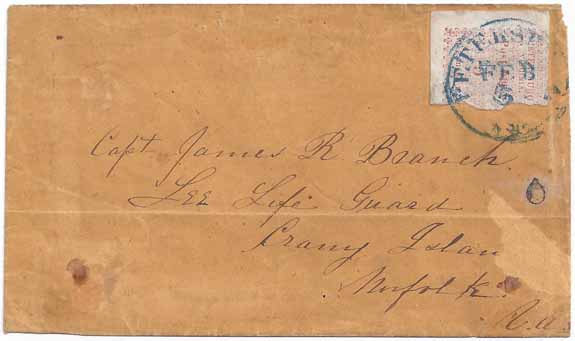 PETERSB
FEB
5
Capt James R Branch
Lee Life Guard
Crany Islan
Norfolk
Va.